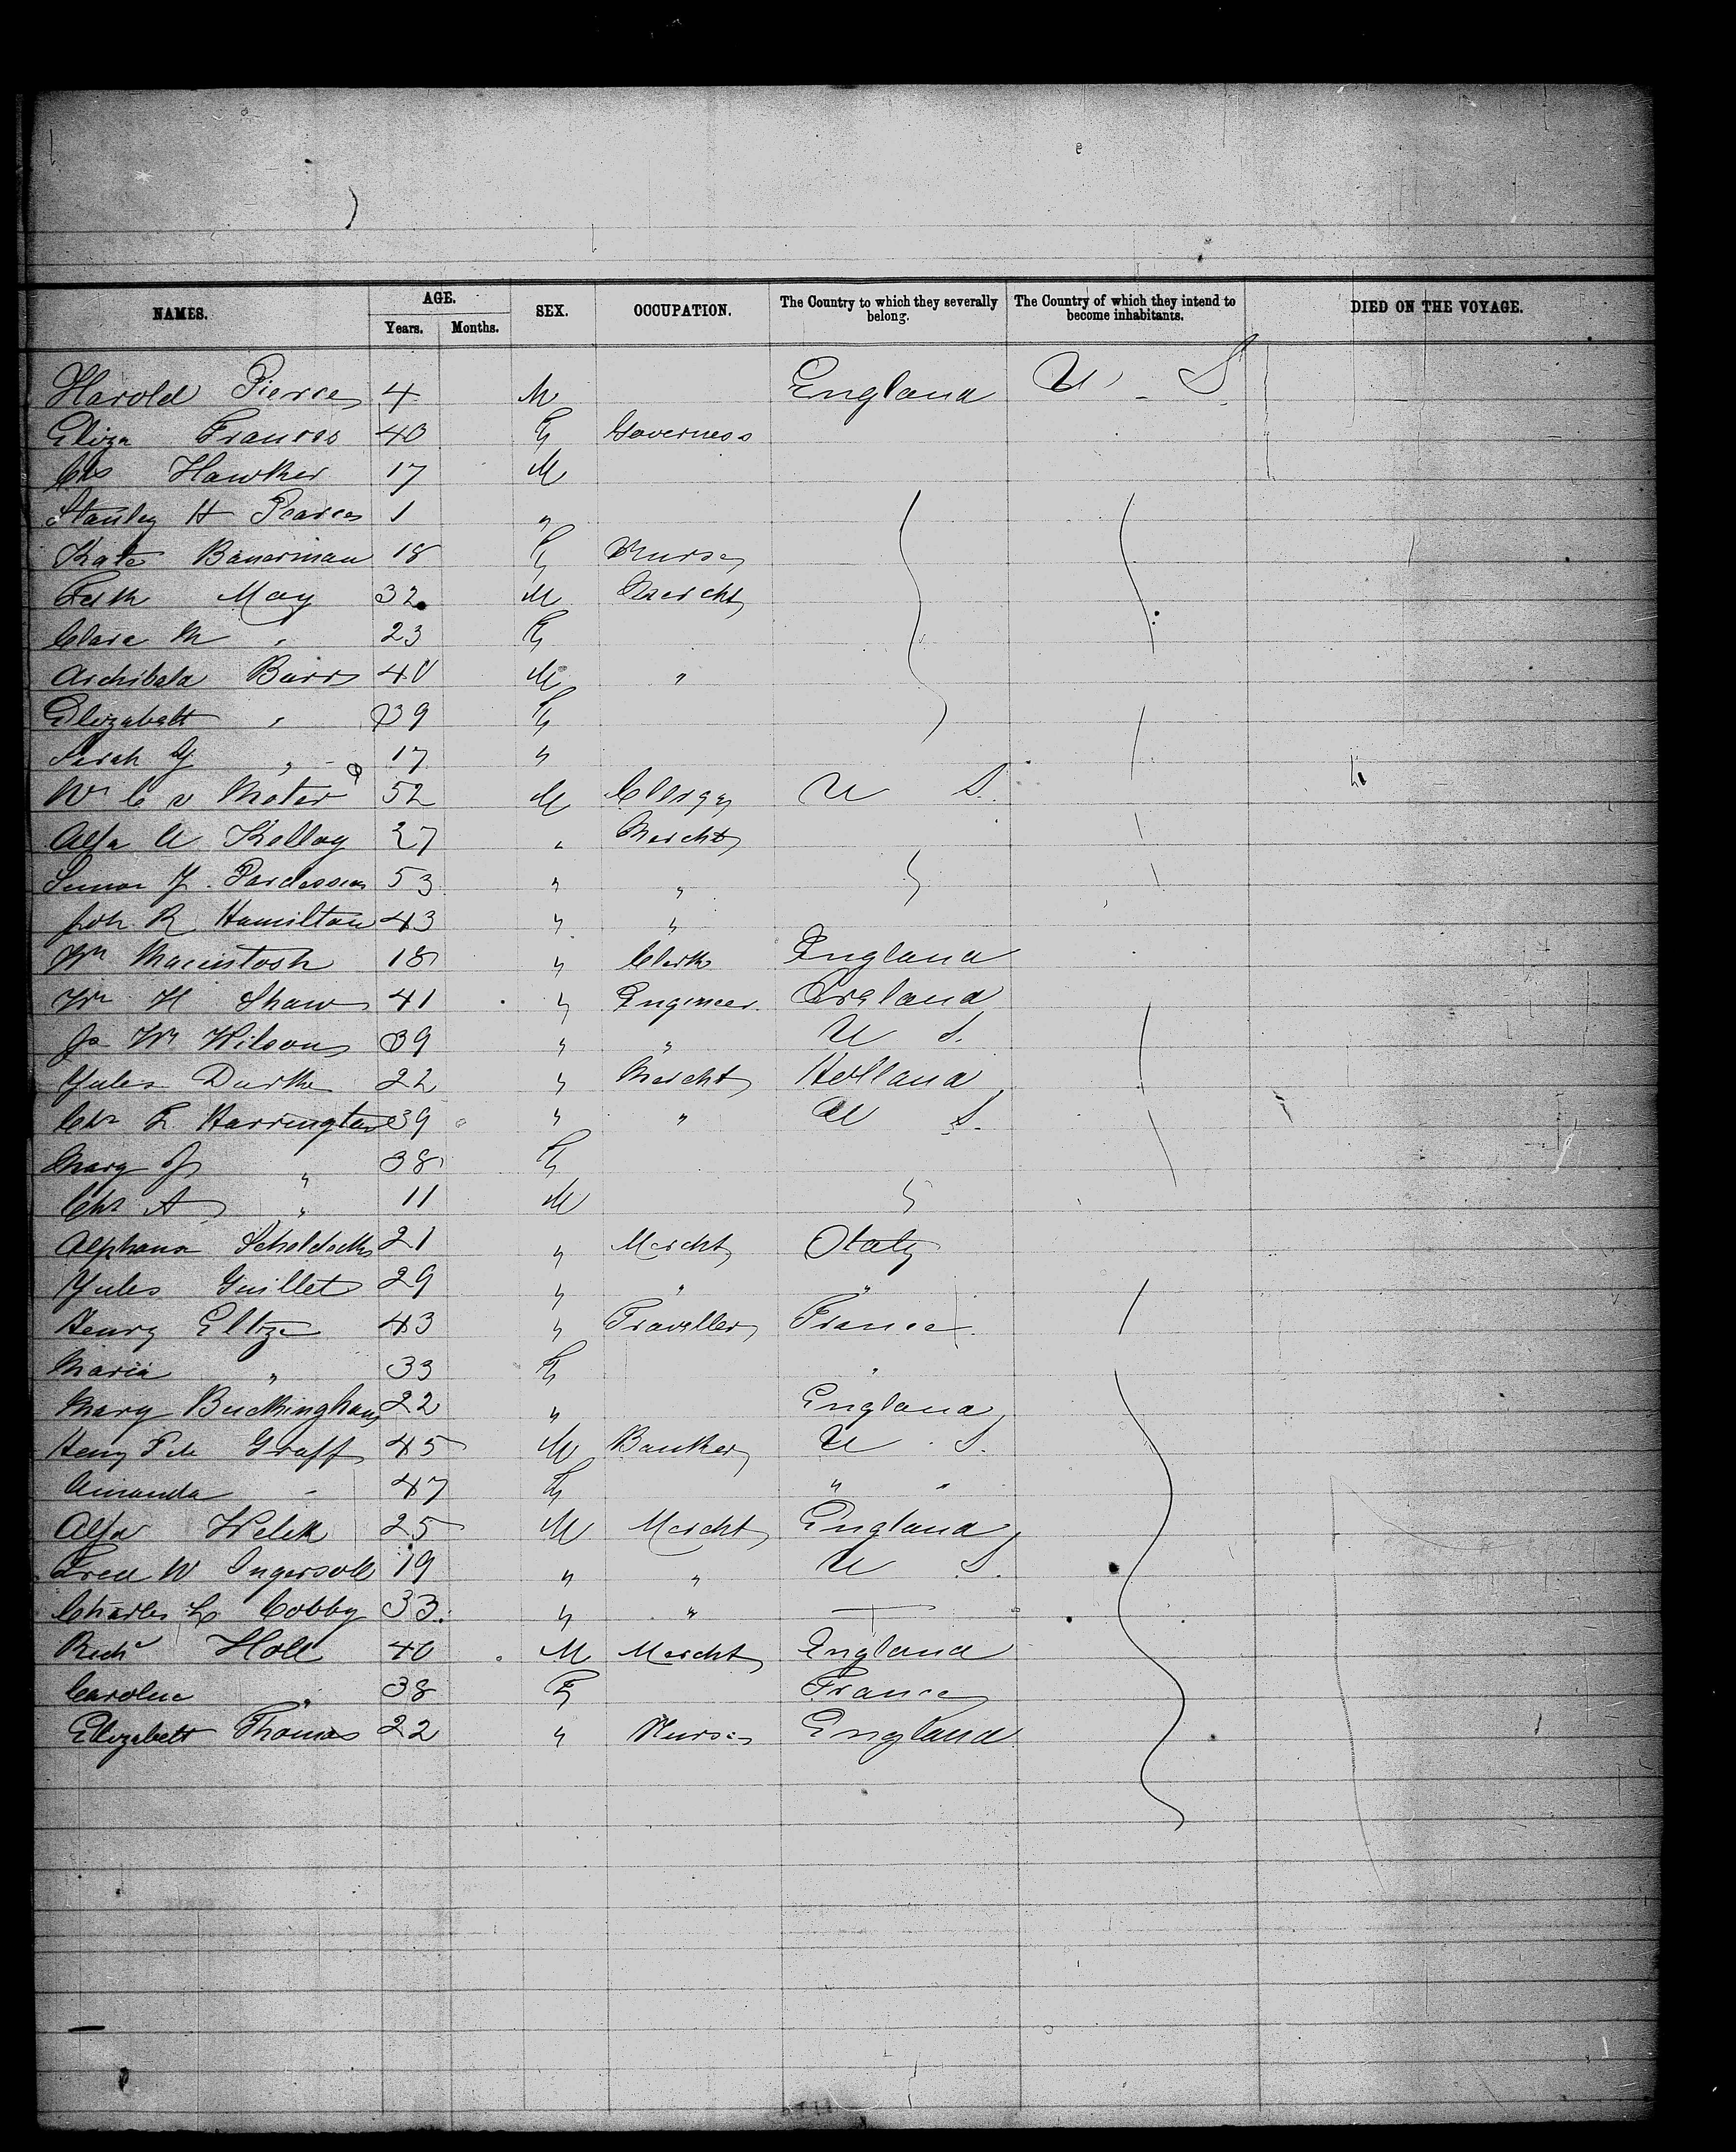 NAMES. AGE. SEX. OCCUPATION. The Country to which they severally belong. The Country of which they intend to become inhabitants. DIED ON THE VOYAGE.
Years. Months.
Harold Pierce 4 M England U S
Eliza Frances 40 F Governess
Chs Hawker 17 M
Stanley H Pearce 1 "
Kate Banerman 18 F Nurse
May 32 M Mercht
Clara M " 23 F
Archibald Barr 40 M "
Elizabeth " 39 F
Sarah " 17 "
Wm C v Meter 52 M Clergy U S.
Alfr A Kellog 27 " Mercht
53 " "
Joh R Hamilton 43 " "
Wm Macintosh 18 " Clerk England
Wm H Shaw 41 " Engineer Ireland
Ja Wm Wilson 39 " " U S.
Jules 22 " Mercht Holland
Chs L Harrington 39 " " U S.
Mary J " 38 F
Chs A " 11 M
Alphons 21 " Mercht Italy
Jules Guillet 29 " " "
Henry 43 " Traveller France
Maria " 33 F "
Mary Buckingham 22 " England
Henry P de Graff 45 M Banker U S.
Amanda " 47 F " "
Alfr 25 M Mercht England
Fred W Ingersoll 19 " " U S.
Charles L Cobby 33 " "
Richd Holl 40 M Mercht England
Caroline " 38 F France
Elizabeth Thomas 22 " Nurse England